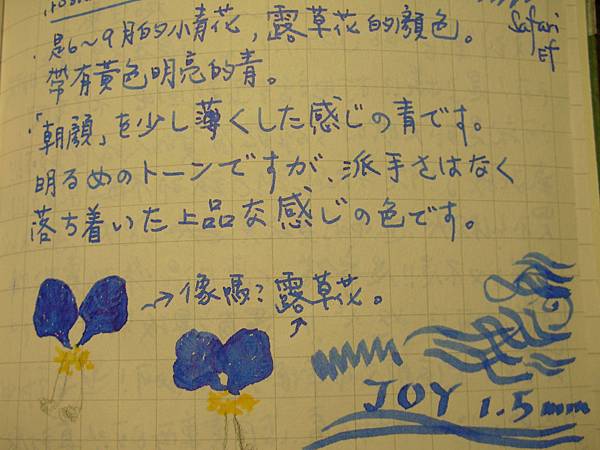 Safari
EF
・是6~9月的小青花,露草花的顏色。
帶有黃色明亮的青。
・「朝顔」を少し薄くした感じの青です。
明るめのトーンですが、派手さはなく
落ち着いた上品な感じの色です。
→像嗎?露草花。
JOY 1.5mm